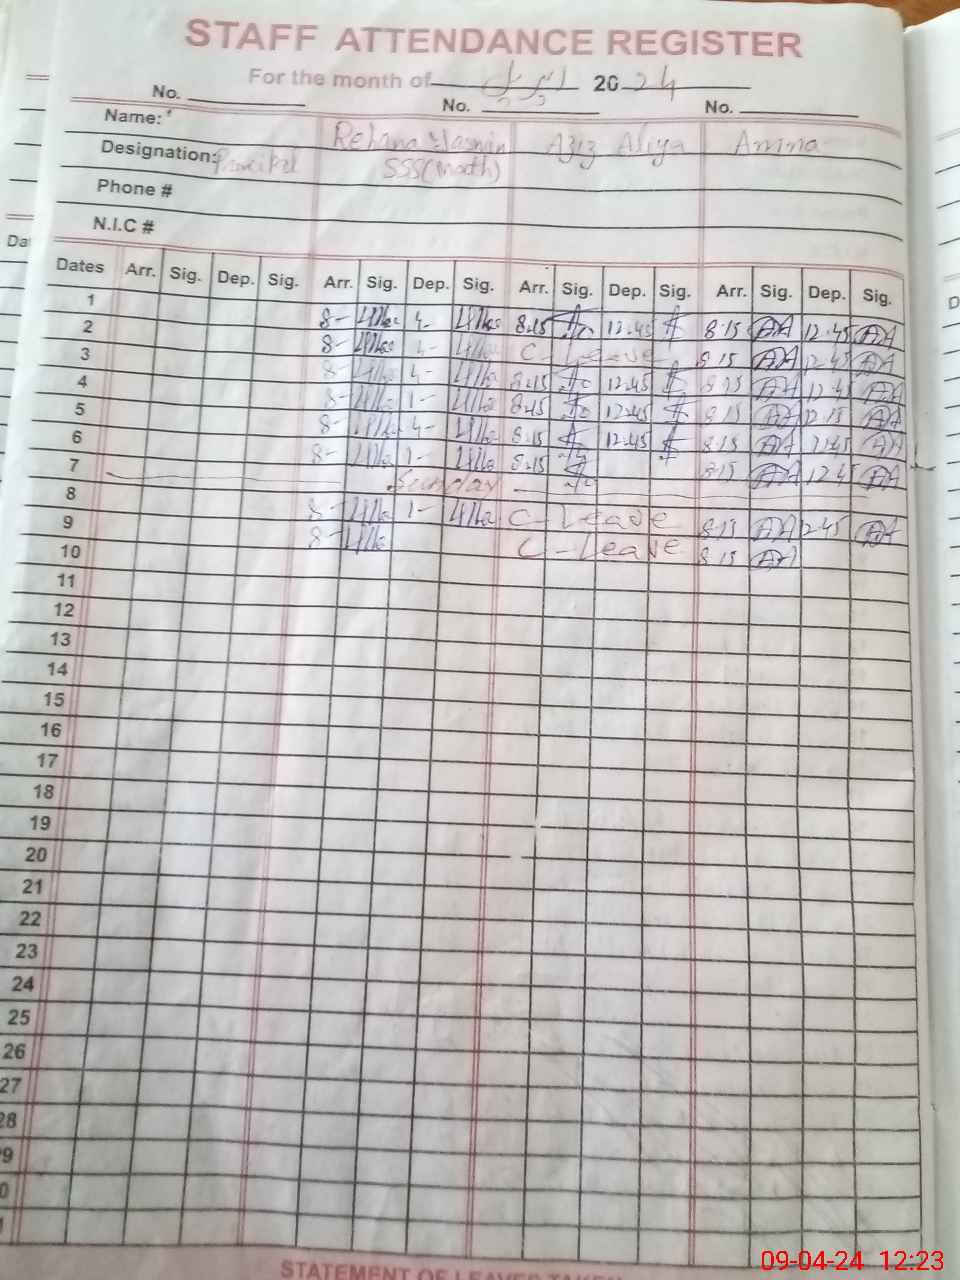 STAFF ATTENDANCE REGISTER
For the month of اپریل 2024
No. No. No.
Name: Rehana Yasmin Aziz Aliya Amina
Designation: Principal SSS(math)
Phone #
N.I.C #
Dates Arr. Sig. Dep. Sig. Arr. Sig. Dep. Sig. Arr. Sig. Dep. Sig. Arr. Sig. Dep. Sig.
1 8- 4- 8.15 12.45 8.15 AA 12.45 AA
2 8- C-Leave 8.15 AA 12.45 AA
3 8- 4- 8.15 12.45 8.15 AA 12.45 AA
4 8- 1- 8.15 12.45 8.15 AA 12.15 AA
5 8- 4- 8.15 12.45 8.15 AA AA
6 8- 1- 8.15 8.15 AA 12.45 AA
7 Sunday
8 8- 1- C-Leave 8.15 AA 12.45 AA
9 8- C-Leave 8.15 AA
10
11
12
13
14
15
16
17
18
19
20
21
22
23
24
25
26
27
28
9
0
STATEMENT OF LEAVES TAKEN
09-04-24 12:23